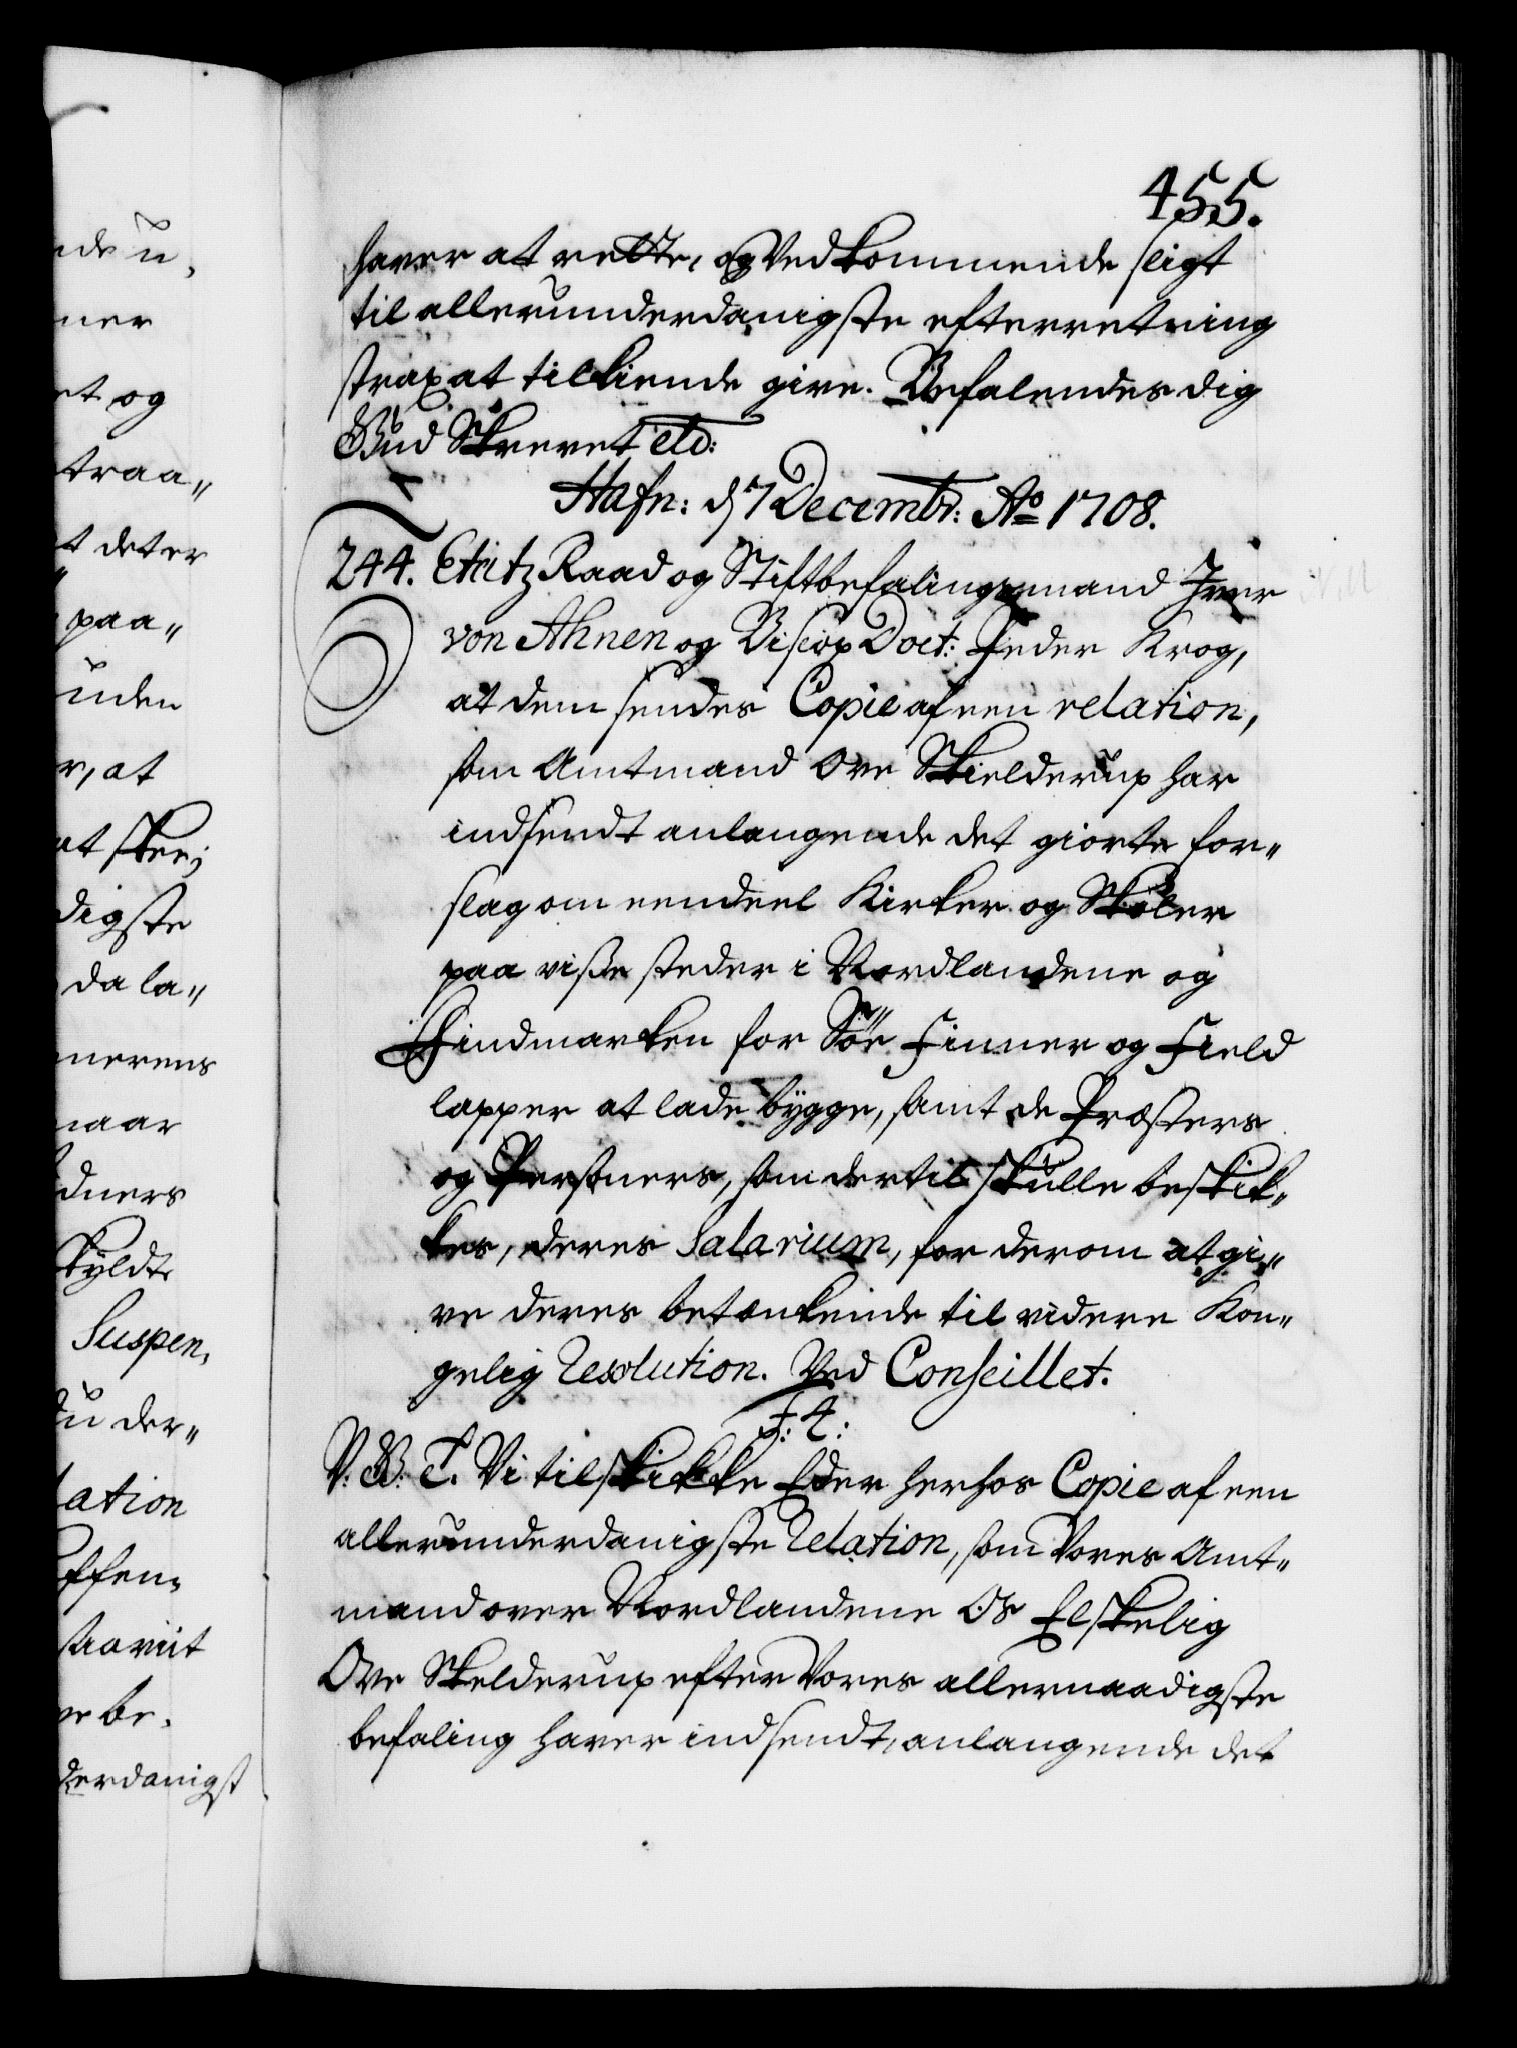 455.
haver at rette, og Vedkommende sligt
til allerunderdanigste efterretning
strax at tilkiende give. Befalendes dig
Gud Skrevet etc:
Hafn: d 7 Decembr: Aº 1708.
244. Etatz Raad og Stiftbefalingsmand Iver
von Ahnen og Biscop Doct: Peder Krog,
at dem sendes Copie af een relation,
som Amtmand Ove Skielderup har
indsendt anlangende det giorte for„
slag om eendeel Kirker og Skoler
paa visse steder i Nordlandene og
Findmarken for Söe Finner og Field
lapper at lade bÿgge, samt de Præsters
og Personers, som dertil skulle beskik„
kes, deres Salarium, for derom at gi„
ve deres betænkende til videre Kon„
gelig Resolution. Ved Conseillet.
F: 4:
V. G. T. Vi tilskikke Eder herhos Copie af een
allerunderdanigste Relation, som Vores Amt„
mand over Nordlandene Os Elskelig
Ove Skelderup efter Vores allernaadigste
befaling haver indsendt, anlangende det
nde u,
ner
et og
traa„
t det er
paa„
uden
r, at
at skee;
digste
da la„
nerens
naar
dners
kÿldt
Suspen,
du der„
lation
ve be,
derdanigst